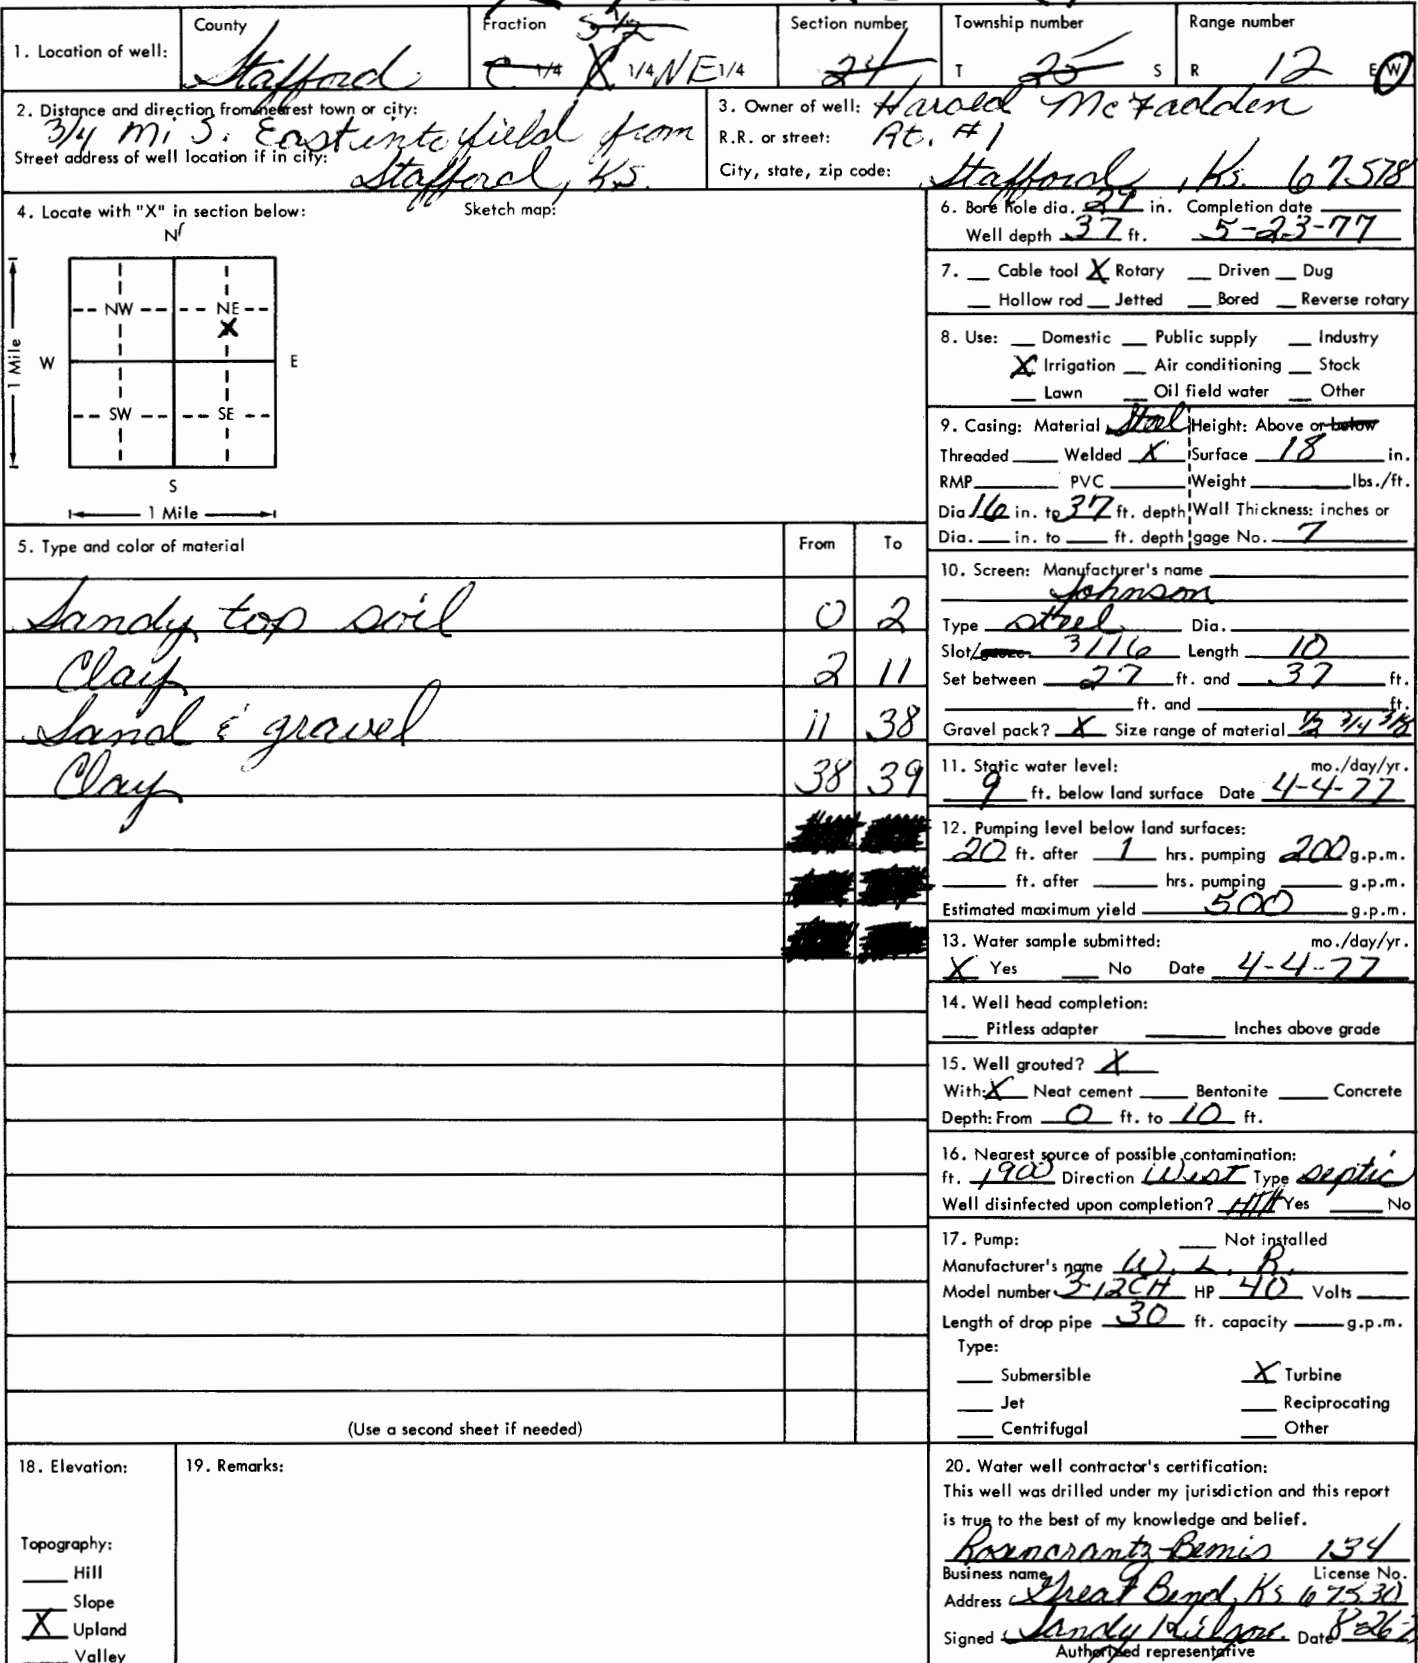 County Fraction Section number Township number Range number
S 1/2
1. Location of well: Stafford C 1/4 X 1/4 NE 1/4 24 T 25 S R 12 E W
2. Distance and direction from nearest town or city:
3/4 mi S. East into field from
Street address of well location if in city:
Stafford, Ks.
3. Owner of well: Harold McFadden
R.R. or street: Rt. #1
City, state, zip code: Stafford, Ks. 67578
4. Locate with "X" in section below: Sketch map:
N
NW NE
X
W E
1 Mile
SW SE
S
1 Mile
5. Type and color of material From To
Sandy top soil 0 2
Clay 2 11
Sand & gravel 11 38
Clay 38 39
(Use a second sheet if needed)
6. Bore hole dia. 29 in. Completion date
Well depth 37 ft. 5-23-77
7. Cable tool X Rotary Driven Dug
Hollow rod Jetted Bored Reverse rotary
8. Use: Domestic Public supply Industry
X Irrigation Air conditioning Stock
Lawn Oil field water Other
9. Casing: Material Steel Height: Above or below
Threaded Welded X Surface 18 in.
RMP PVC Weight lbs./ft.
Dia 16 in. to 37 ft. depth Wall Thickness: inches or
Dia. in. to ft. depth gage No. 7
10. Screen: Manufacturer's name
Johnson
Type steel Dia.
Slot/gauze 3/16 Length 10
Set between 27 ft. and 37 ft.
ft. and ft.
Gravel pack? X Size range of material 1/2 3/4 3/8
11. Static water level: mo./day/yr.
9 ft. below land surface Date 4-4-77
12. Pumping level below land surfaces:
20 ft. after 1 hrs. pumping 200 g.p.m.
ft. after hrs. pumping g.p.m.
Estimated maximum yield 500 g.p.m.
13. Water sample submitted: mo./day/yr.
X Yes No Date 4-4-77
14. Well head completion:
Pitless adapter Inches above grade
15. Well grouted? X
With: X Neat cement Bentonite Concrete
Depth: From 0 ft. to 10 ft.
16. Nearest source of possible contamination:
ft. 1900 Direction West Type septic
Well disinfected upon completion? HTH Yes No
17. Pump: Not installed
Manufacturer's name W. L. R.
Model number 3-12CH HP 40 Volts
Length of drop pipe 30 ft. capacity g.p.m.
Type:
Submersible X Turbine
Jet Reciprocating
Centrifugal Other
18. Elevation:
Topography:
Hill
Slope
X Upland
Valley
19. Remarks:
20. Water well contractor's certification:
This well was drilled under my jurisdiction and this report
is true to the best of my knowledge and belief.
Rosencrantz-Bemis 134
Business name License No.
Address Great Bend, Ks 67530
Signed Sandy Date 8-26-
Authorized representative